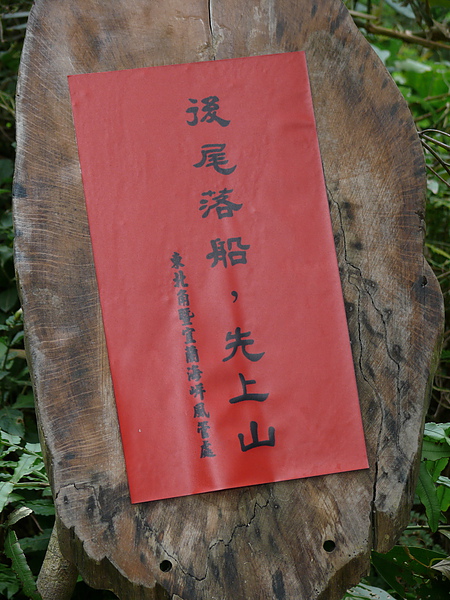 後尾落船，先上山
東北角暨宜蘭海岸風管處